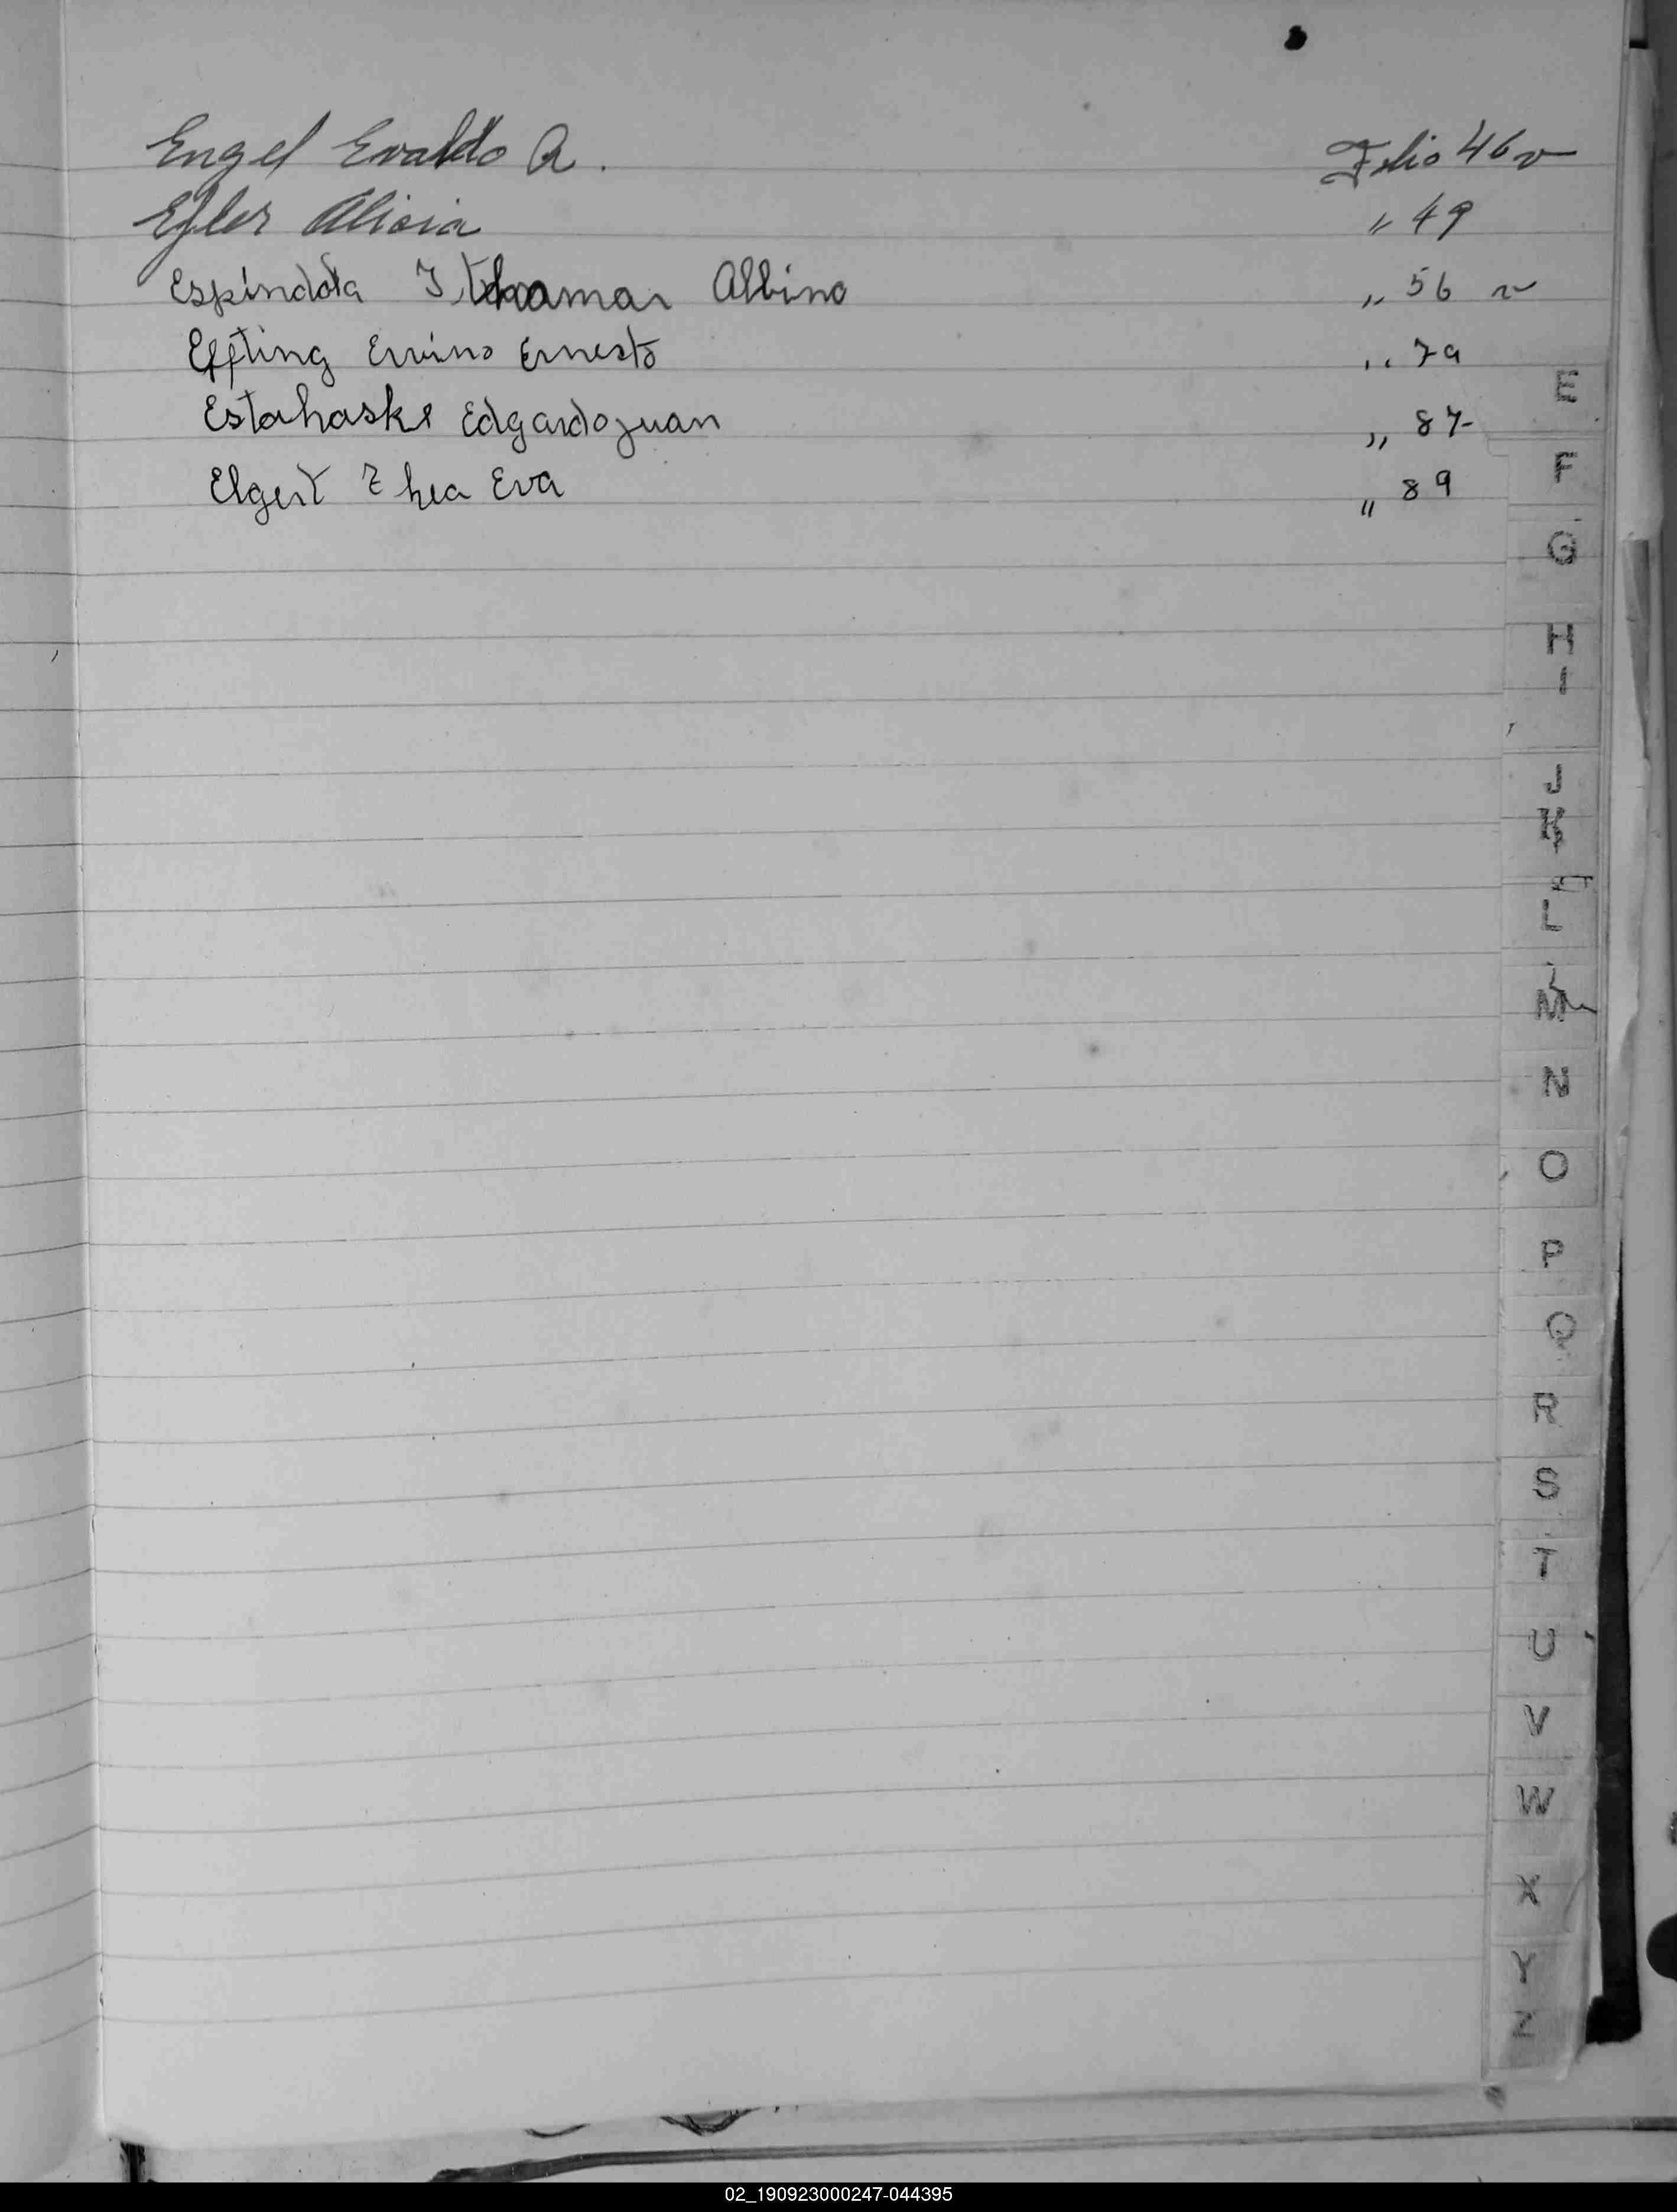 Engel Evaldo A. Folio 46 v
Efler Alicia " 49
Espindola Ithamar Albino " 56 v
Effting Ervino Ernesto " 79
Estahaske Edgardo Juan " 87
Elgert Thea Eva " 89
E
F
G
H
I
J
K
L
M
N
O
P
Q
R
S
T
U
V
W
X
Y
Z
02_190923000247-044395